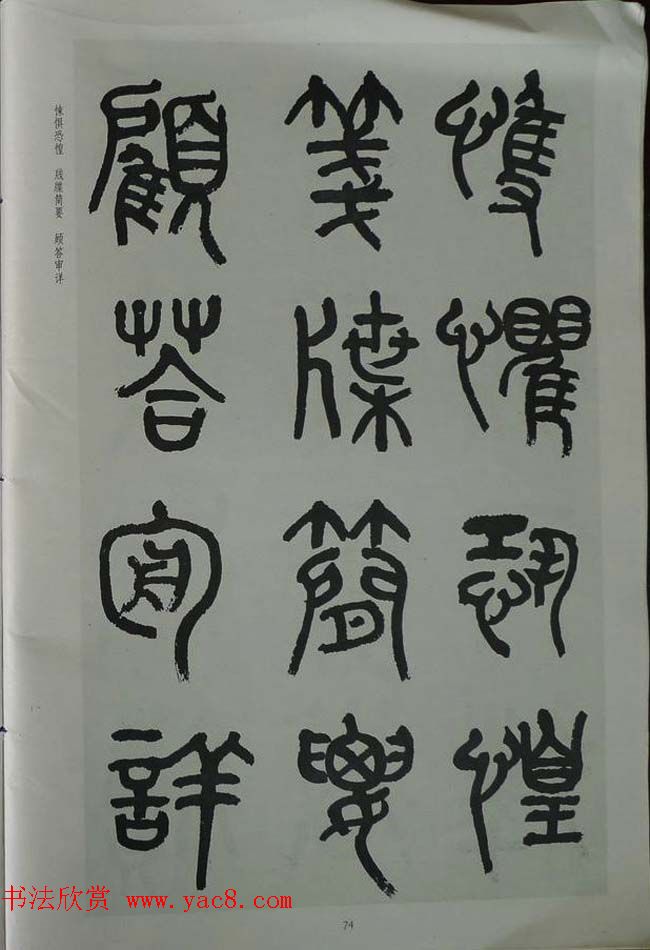 愯懼恐惶
箋牒簡要
顧荅審詳
悚惧恐惶 笺牒简要 顾答审详
书法欣赏 www.yac8.com
74